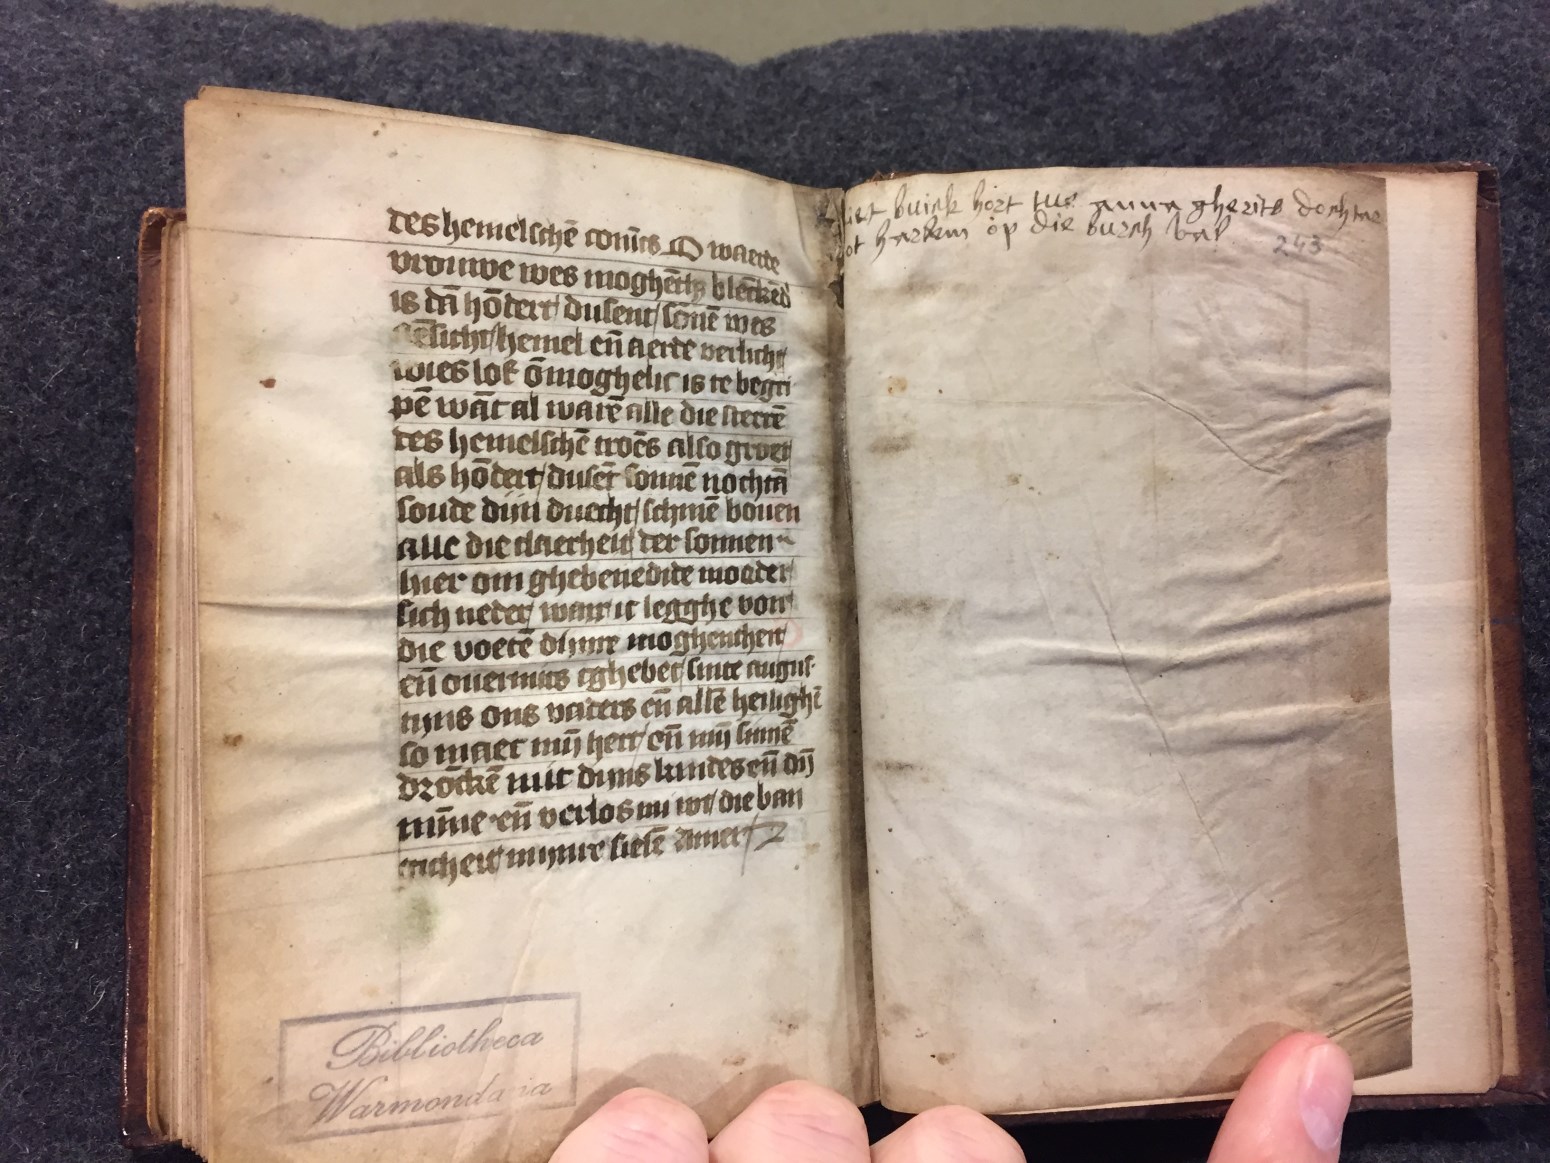 des hemelschē conīcs O waerde
vrouwe wes moghēth blēckēd
is dā hōdert dusent sōnē wes
aēsicht hemel eñ aerde verlicht
wies lof ōmoghelic is te begri
pē wāt al warē alle die sterrē
des hemelschē troēs also groet
als hōdert dusēt sonnē nochtā
soude dijn duecht schinē bouen
alle die claerheit der sonnen
hier om ghebenedide moeder
sich neder want ic legghe voir
die voetē dijnre moghentheit
eñ ouermits tghebet sinte augus
tijns ons vaders eñ allē heilighē
so maect mij hert eñ mij sinnē
drōckē mit dijns kindes eñ dij
mīne eñ verlos mi wt die ban
cicheit mijnre sielē Amen
Bibliotheca
Warmondana
dit buick hört tus anna gherits dochter
tot harlem op die burch wal
243